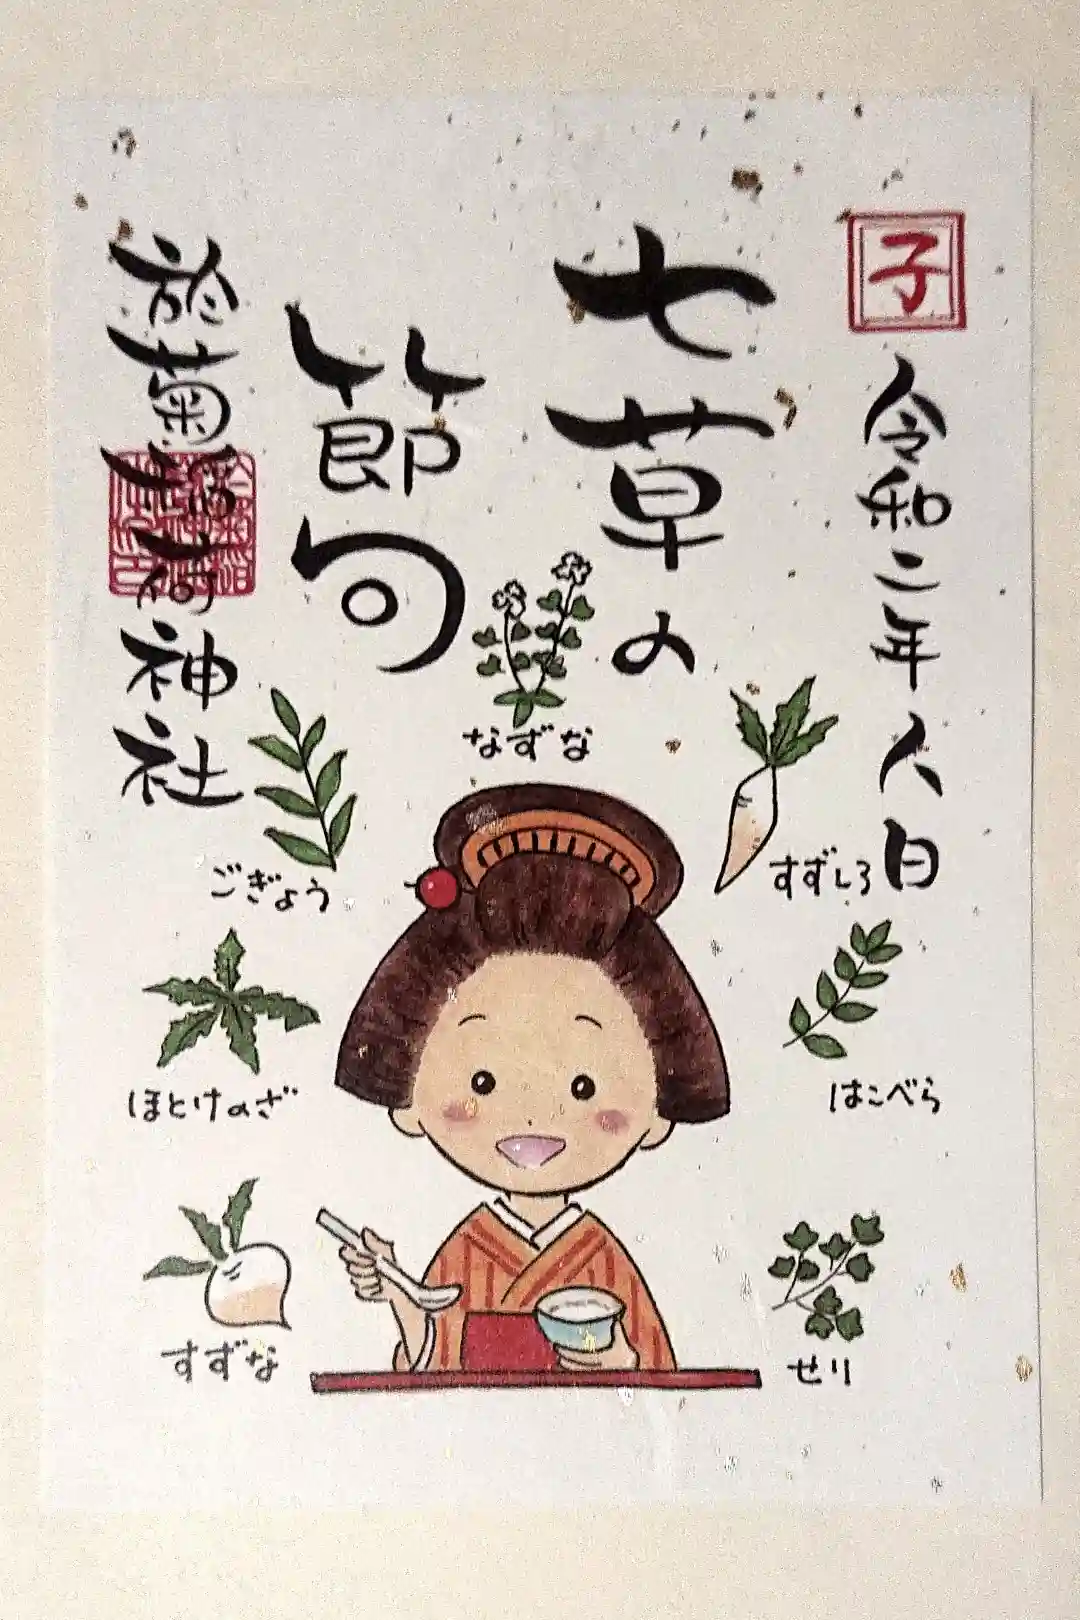 子
令和二年人日
七草の
節句
於菊稲荷神社
なずな
すずしろ
ごぎょう
はこべら
ほとけのざ
せり
すずな